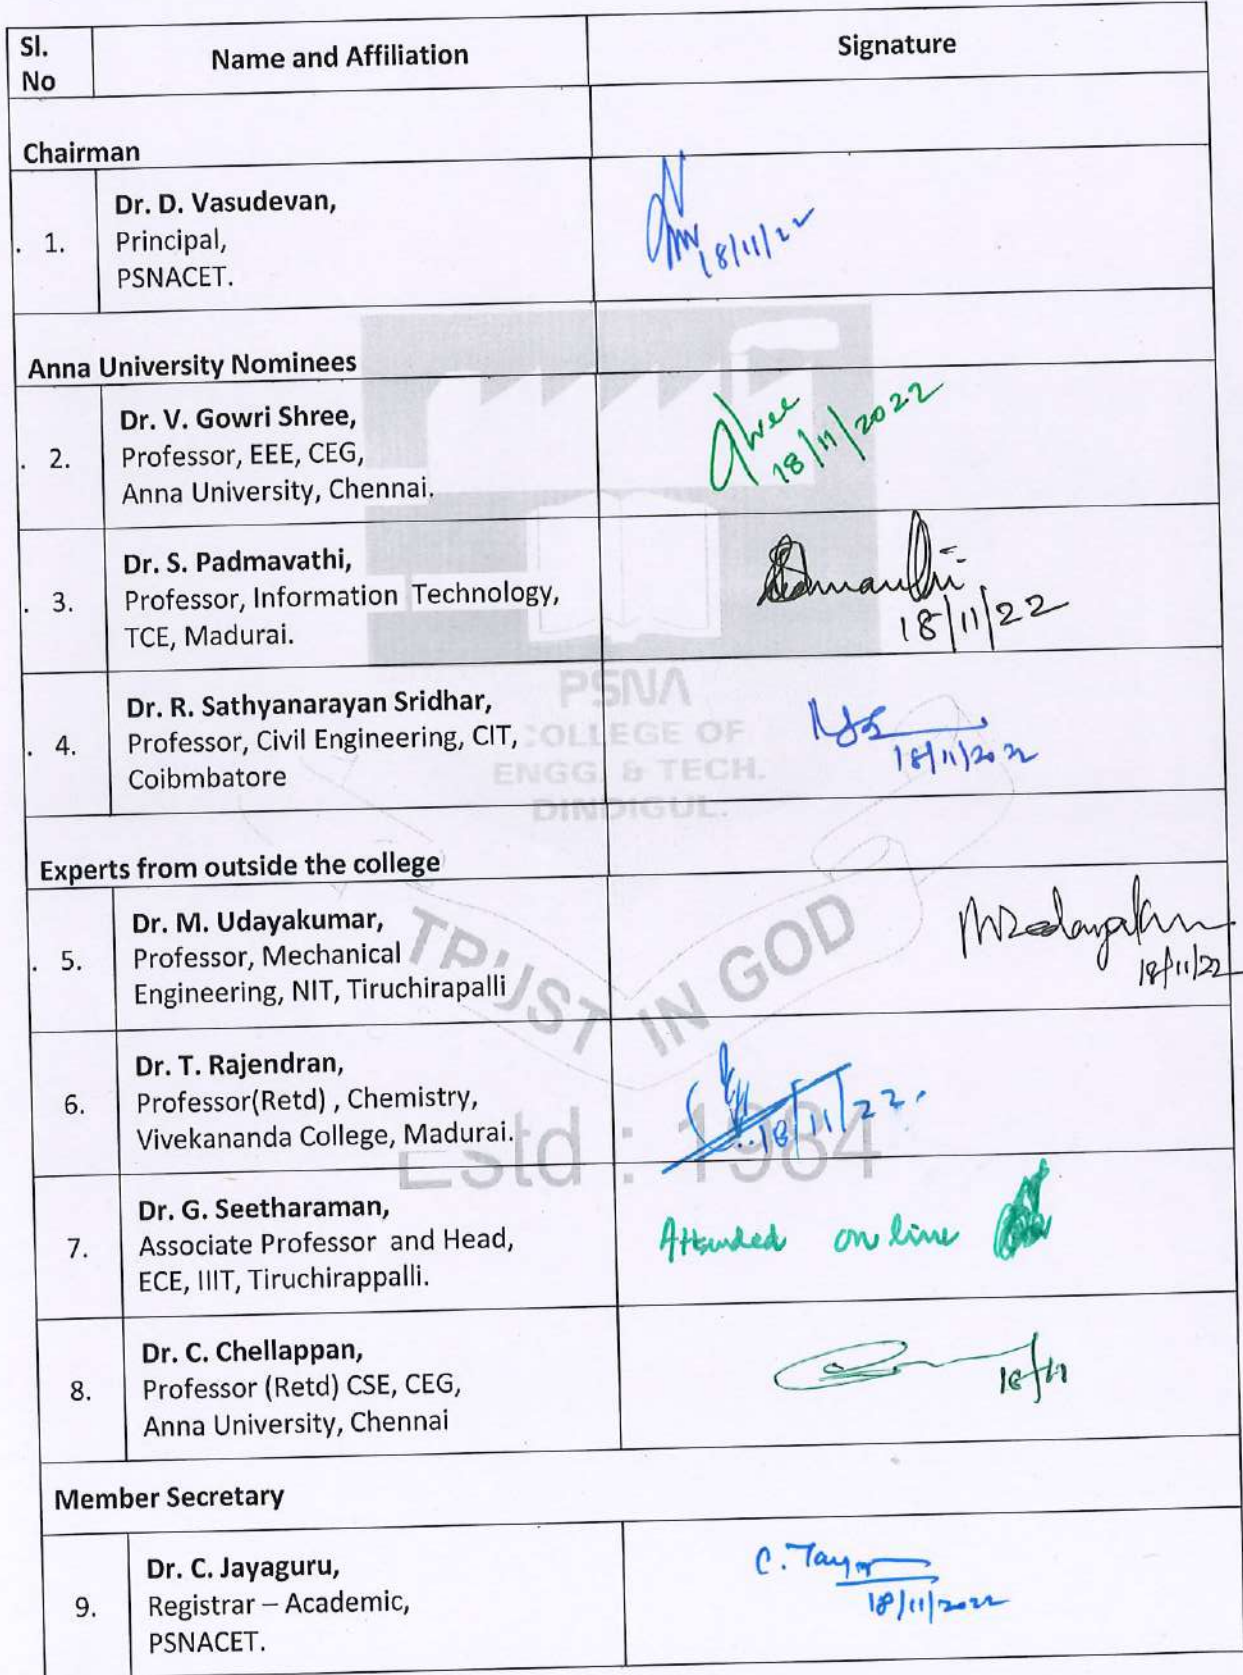 Sl. No
Name and Affiliation
Signature
Chairman
. 1.
Dr. D. Vasudevan,
Principal,
PSNACET.
18/11/22
Anna University Nominees
. 2.
Dr. V. Gowri Shree,
Professor, EEE, CEG,
Anna University, Chennai.
18/11/2022
. 3.
Dr. S. Padmavathi,
Professor, Information Technology,
TCE, Madurai.
18/11/22
. 4.
Dr. R. Sathyanarayan Sridhar,
Professor, Civil Engineering, CIT,
Coibmbatore
18/11/2022
PSNA
COLLEGE OF
ENGG. & TECH.
DINDIGUL.
Experts from outside the college
. 5.
Dr. M. Udayakumar,
Professor, Mechanical
Engineering, NIT, Tiruchirapalli
18/11/22
TRUST IN GOD
6.
Dr. T. Rajendran,
Professor(Retd) , Chemistry,
Vivekananda College, Madurai.
18/11/22.
Estd : 1984
7.
Dr. G. Seetharaman,
Associate Professor and Head,
ECE, IIIT, Tiruchirappalli.
Attended on line
8.
Dr. C. Chellappan,
Professor (Retd) CSE, CEG,
Anna University, Chennai
18/11
Member Secretary
9.
Dr. C. Jayaguru,
Registrar – Academic,
PSNACET.
18/11/2022